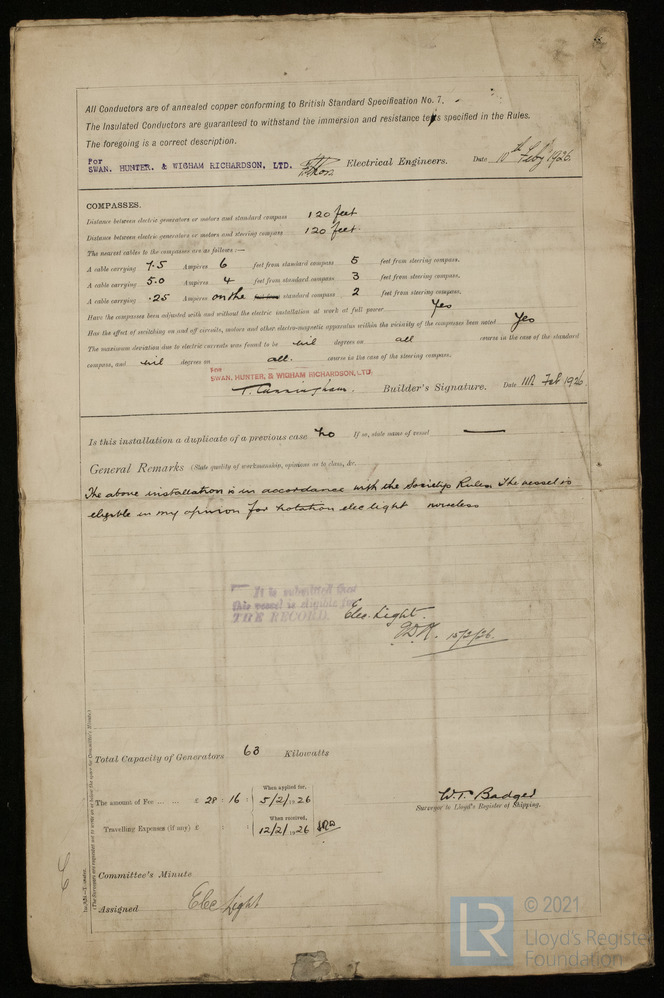 All Conductors are of annealed copper conforming to British Standard Specification No. 7.
The Insulated Conductors are guaranteed to withstand the immersion and resistance tests specified in the Rules.
The foregoing is a correct description.
For
SWAN, HUNTER, & WIGHAM RICHARDSON, LTD. Electrical Engineers. Date 10th Feby 1926
COMPASSES.
Distance between electric generators or motors and standard compass 120 feet
Distance between electric generators or motors and steering compass 120 feet.
The nearest cables to the compasses are as follows:—
A cable carrying 7.5 Ampères 6 feet from standard compass 5 feet from steering compass.
A cable carrying 5.0 Ampères 4 feet from standard compass 3 feet from steering compass.
A cable carrying .25 Ampères on the feet from standard compass 2 feet from steering compass.
Have the compasses been adjusted with and without the electric installation at work at full power Yes
Has the effect of switching on and off circuits, motors and other electro-magnetic apparatus within the vicinity of the compasses been noted Yes
The maximum deviation due to electric currents was found to be nil degrees on all course in the case of the standard
compass, and nil degrees on all. course in the case of the steering compass.
For
SWAN, HUNTER, & WIGHAM RICHARDSON, LTD.
T. Cunningham. Builder's Signature. Date 11th Feb 1926
Is this installation a duplicate of a previous case No If so, state name of vessel —
General Remarks (State quality of workmanship, opinions as to class, &c.
The above installation is in accordance with the Society's Rules. The vessel is
eligible in my opinion for notation elec light wireless
It is submitted that
this vessel is eligible for
THE RECORD. Elec. Light.
15/2/26.
Total Capacity of Generators 63 Kilowatts
The amount of Fee ... ... £ 28 : 16 : When applied for, 5/2/1926
Travelling Expenses (if any) £ : : When received, 12/2/1926
W.T. Badger
Surveyor to Lloyd's Register of Shipping.
Committee's Minute
Assigned Elec Light
LR
© 2021
Lloyd's Register
Foundation